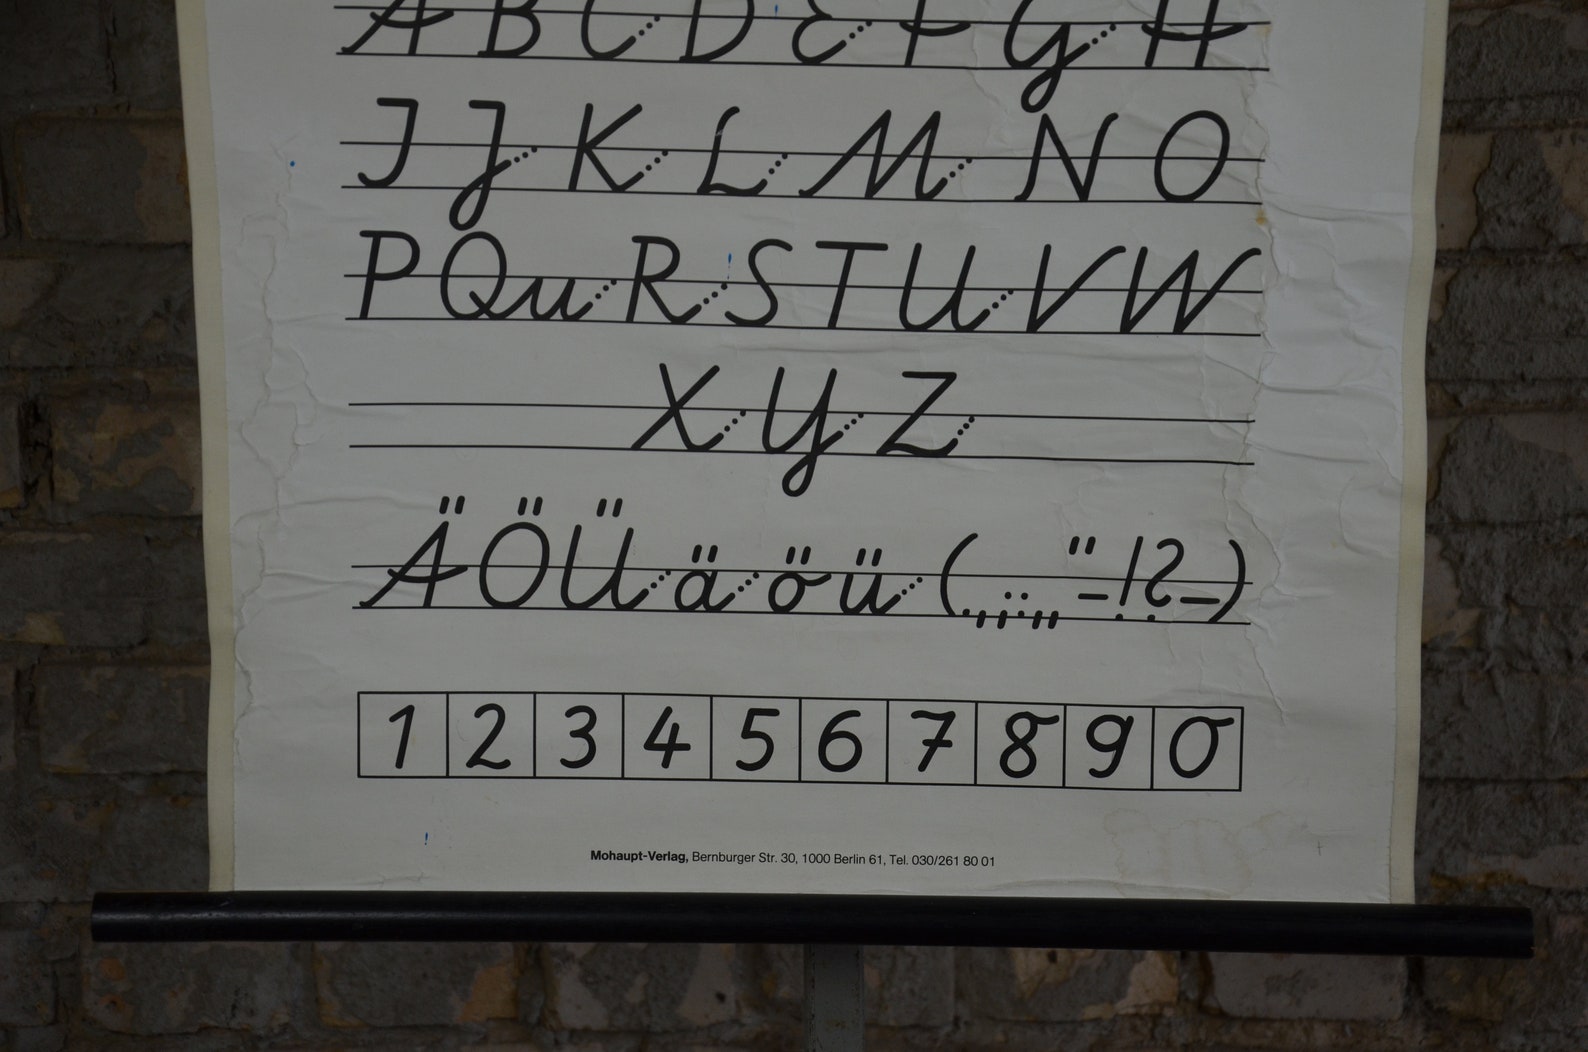 A B C D E F G H
I J K L M N O
P Qu R S T U V W
X Y Z
Ä Ö Ü ä ö ü (. , ; : „ " - ! ? – )
1 2 3 4 5 6 7 8 9 0
Mohaupt-Verlag, Bernburger Str. 30, 1000 Berlin 61, Tel. 030/261 80 01